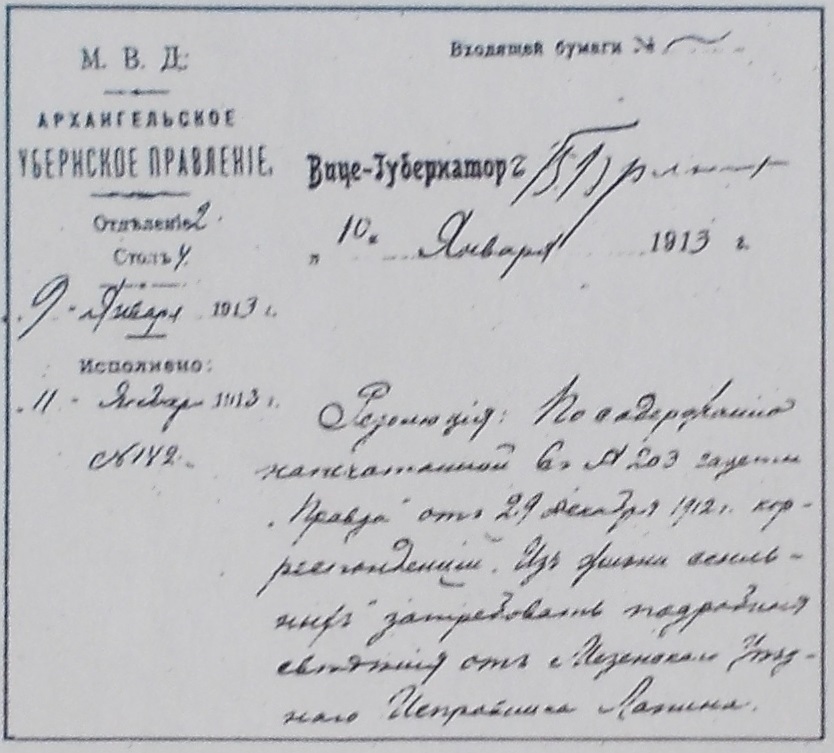 М. В. Д.
АРХАНГЕЛЬСКОЕ
УБЕРНСКОЕ ПРАВЛЕНІЕ.
Отдѣленіе 2
Столъ 4.
9 Января 1913 г.
Исполнено:
„ 11 " Январ 1913 г.
№ 142.
Входящей бумаги №
Вице-Губернаторъ
„ 10 " Января 1913 г.
Резолюція: По содержанію
напечатанной въ № 203 газеты
„Правда" отъ 29 декабря 1912 г. кор-
респонденціи „Изъ жизни ссыль-
ныхъ" затребовать подробныя
свѣдѣнія отъ Мезенскаго Уѣзд-
наго Исправника Лапина.